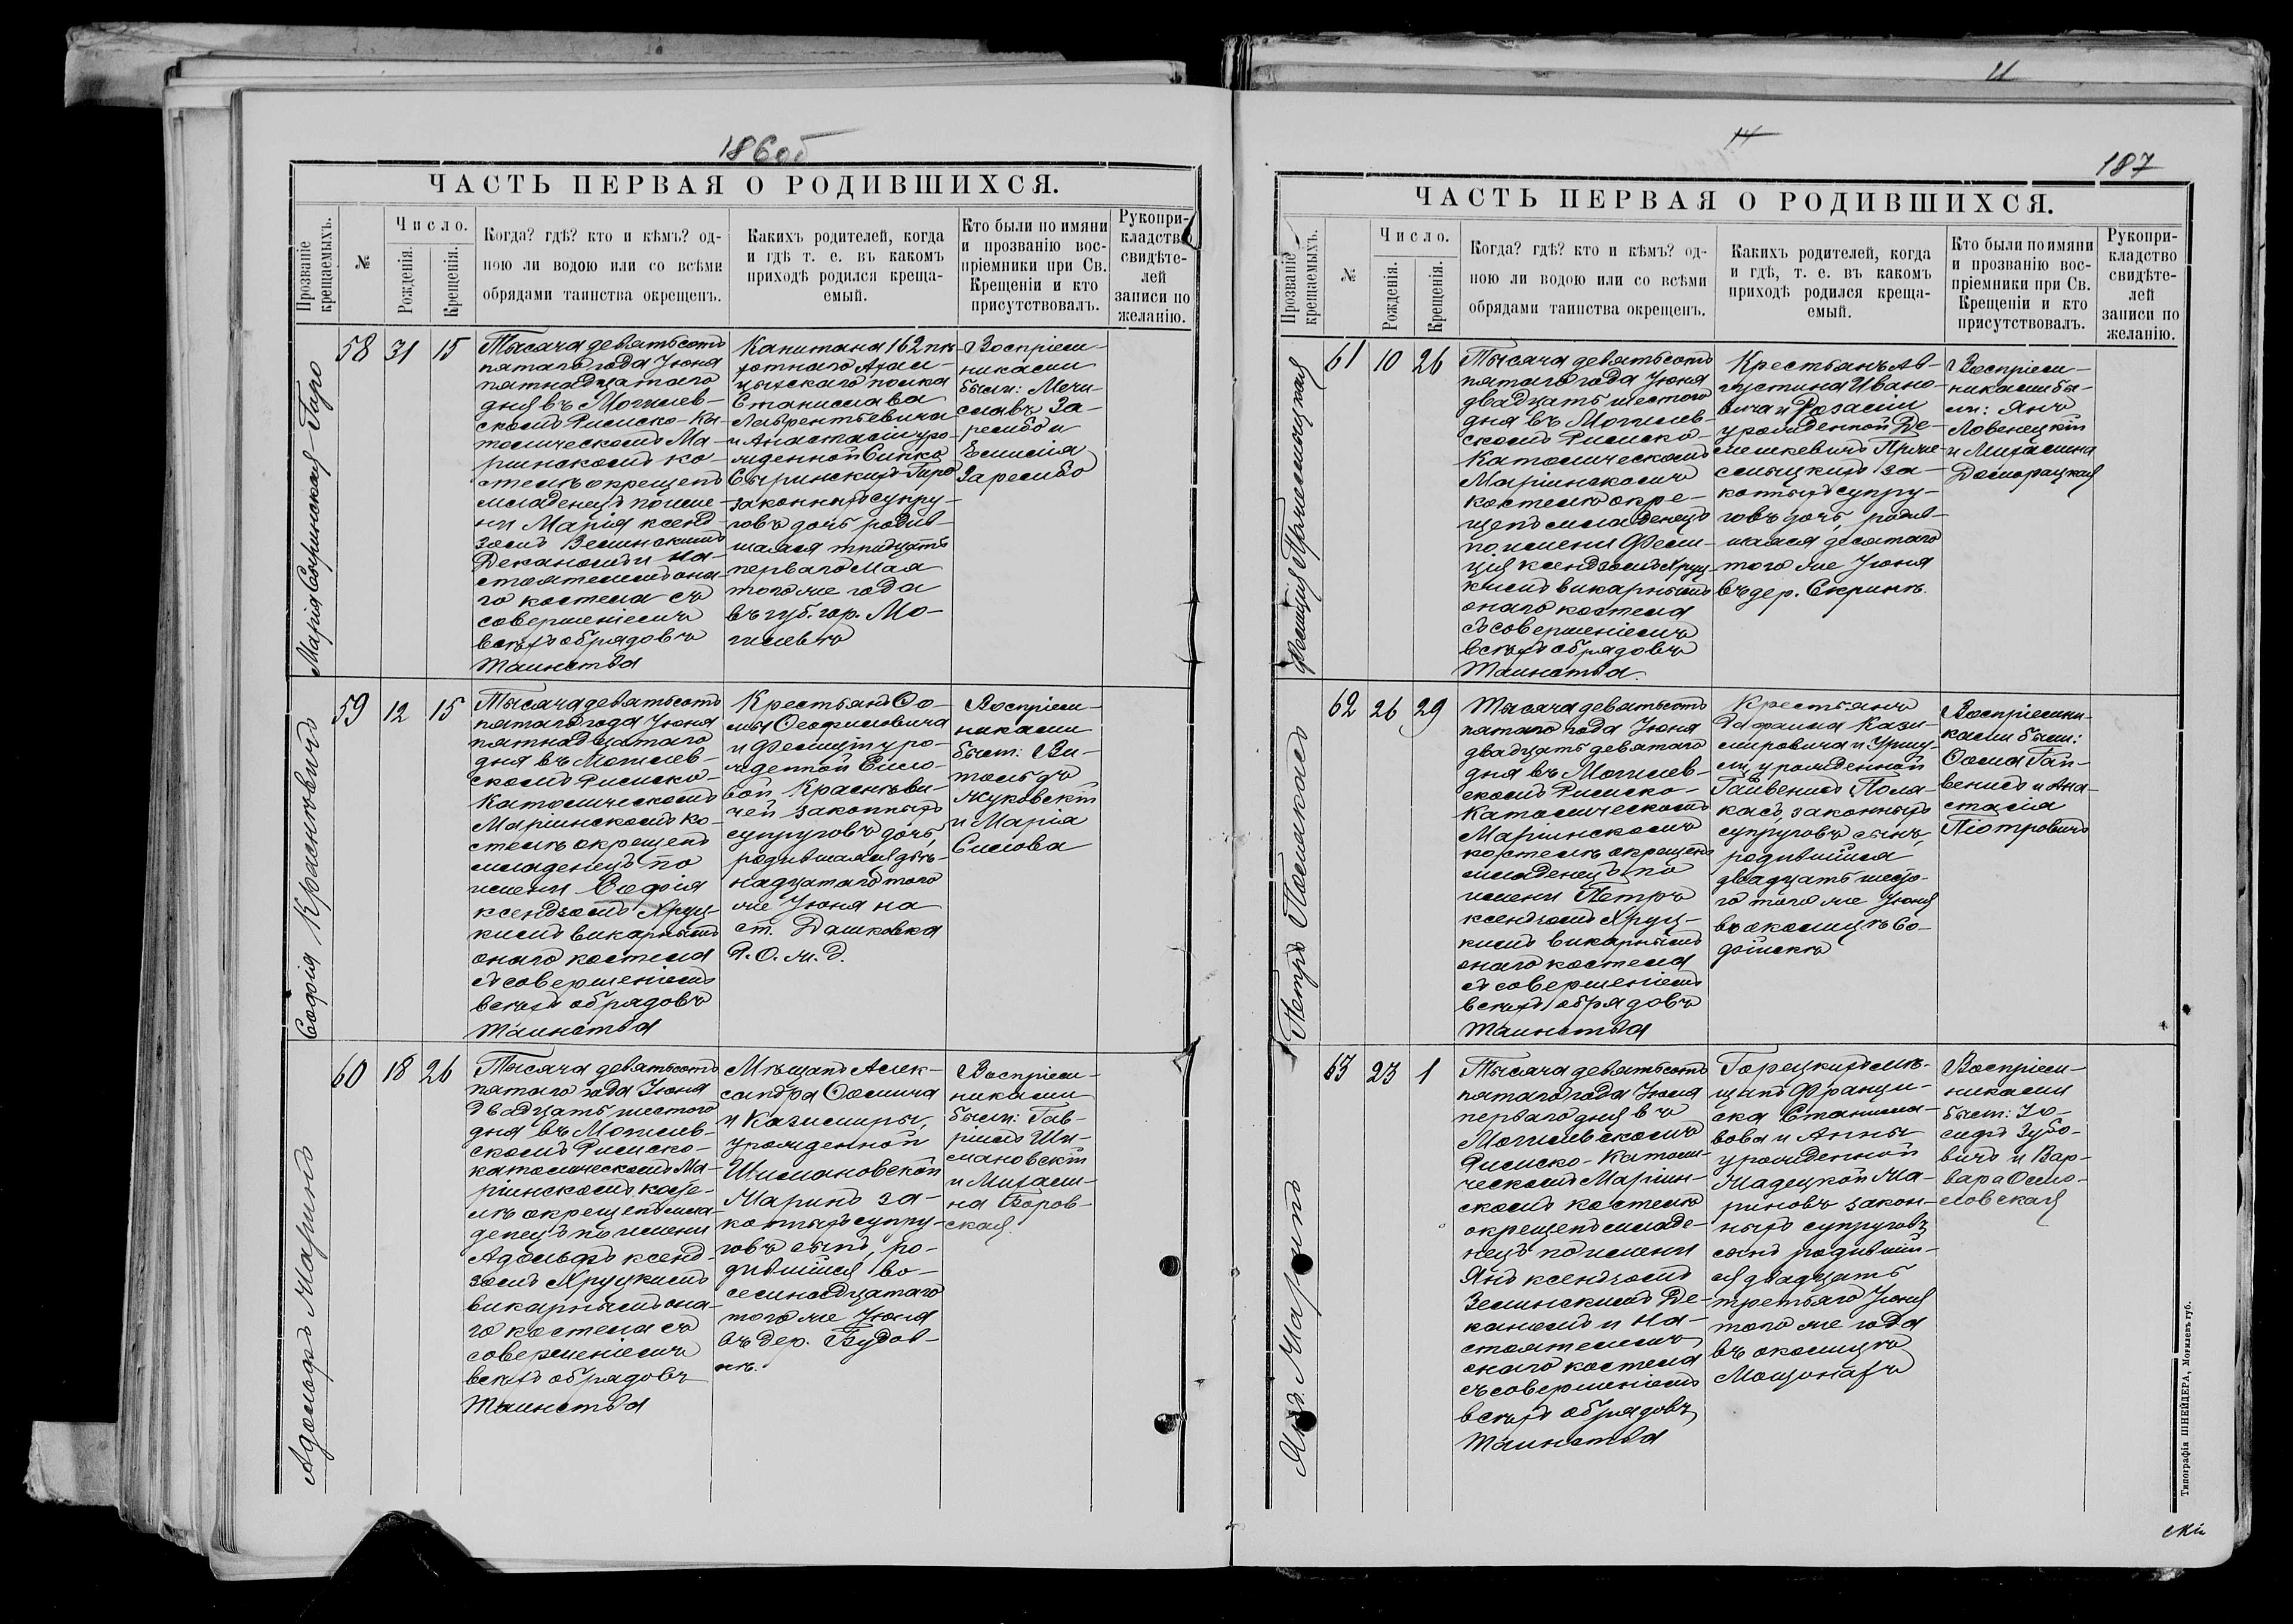 186об
ЧАСТЬ ПЕРВАЯ О РОДИВШИХСЯ.
Прозваніе крещаемыхъ.
№
Число.
Рожденія.
Крещенія.
Когда? гдѣ? кто и кѣмъ? од-
ною ли водою или со всѣми
обрядами таинства окрещенъ.
Какихъ родителей, когда
и гдѣ т. е. въ какомъ
приходѣ родился креща-
емый.
Кто были по имяни
и прозванію вос-
пріемники при Св.
Крещеніи и кто
присутствовалъ.
Рукопри-
кладство
свидѣте-
лей
записи по
желанію.
Марія Сыринская-Гиро
58 31 15
Тысяча девятьсотъ
пятаго года Іюня
пятнадцатаго
дня въ Могилев-
скомъ Римско-Ка-
толическомъ Ма-
ріинскомъ ко-
стелѣ окрещенъ
младенецъ по име-
ни Марія ксенд-
зомъ Зелинскимъ
Деканомъ и на-
стоятелемъ она-
го костела съ
совершеніемъ
всѣхъ обрядовъ
Таинства
Капитана 162 пѣ-
хотнаго Ахал-
цыхскаго полка
Станислава
Лаврентьевича
и Анастасіи уро-
жденной Сипко
Сыринскихъ-Гиро
законныхъ супру-
говъ дочь родив-
шаяся тридцать
перваго Мая
того же года
въ губ. гор. Мо-
гилевѣ
Воспріем-
никами
были: Мечи-
славъ За-
рембо и
Емилія
Зарембо
Софія Красневичъ
59 12 15
Тысяча девятьсотъ
пятаго года Іюня
пятнадцатаго
дня въ Могилев-
скомъ Римско-
Католическомъ
Маріинскомъ ко-
стелѣ окрещенъ
младенецъ по
имени Софія
ксендзомъ Хруц-
кимъ викарнымъ
онаго костела
съ совершеніемъ
всѣхъ обрядовъ
Таинства
Крестьянъ Ѳо-
мы Ѳеофиловича
и Фелиціи уро-
жденной
Красневи-
чей законныхъ
супруговъ дочь,
родившаяся двѣ-
надцатаго того
же Іюня на
ст. Дашковка
Р. О. ж. д.
Воспріем-
никами
были: Ви-
тольдъ
Жуковскій
и Марія
Силова
Адольфъ Маринъ
60 18 26
Тысяча девятьсотъ
пятаго года Іюня
двадцать шестого
дня въ Могилев-
скомъ Римско-
католическомъ Ма-
ріинскомъ косте-
лѣ окрещенъ мла-
денецъ по имени
Адольфъ ксенд-
зомъ Хруцкимъ
викарнымъ она-
го костела съ
совершеніемъ
всѣхъ обрядовъ
Таинства
Мѣщанъ Алек-
сандра Ѳомича
и Казимиры,
урожденной
Шимановской
Маринъ за-
конныхъ супру-
говъ сынъ, ро-
дившійся во-
семнадцатаго
того же Іюня
въ дер. Будов-
кѣ.
Воспріем-
никами
были: Гав-
ріилъ Ши-
мановскій
и Михали-
на Боров-
ская.
11
14
187
ЧАСТЬ ПЕРВАЯ О РОДИВШИХСЯ.
Прозваніе крещаемыхъ.
№
Число.
Рожденія.
Крещенія.
Когда? гдѣ? кто и кѣмъ? од-
ною ли водою или со всѣми
обрядами таинства окрещенъ.
Какихъ родителей, когда
и гдѣ, т. е. въ какомъ
приходѣ родился креща-
емый.
Кто были по имяни
и прозванію вос-
пріемники при Св.
Крещеніи и кто
присутствовалъ.
Рукопри-
кладство
свидѣте-
лей
записи по
желанію.
Фелиція Прчемыцкая
61 10 26
Тысяча девятьсотъ
пятаго года Іюня
двадцать шестого
дня въ Могилев-
скомъ Римско-
Католическомъ
Маріинскомъ
костелѣ окре-
щенъ младенецъ
по имени Фели-
ція ксендзомъ Хруц-
кимъ викарнымъ
онаго костела
съ совершеніемъ
всѣхъ обрядовъ
Таинства.
Крестьянъ Ав-
густина Ивано-
вича и Розаліи
урожденной Де-
мешкевичъ Прче-
мыцкихъ за-
конныхъ супру-
говъ дочь, родив-
шаяся десятаго
того же Іюня
въ дер. Скринѣ.
Воспріем-
никами бы-
ли: Янъ
Ловенецкій
и Михалина
Доморацкая
Петръ Полтакасъ
62 26 29
Тысяча девятьсотъ
пятаго года Іюня
двадцать девятаго
дня въ Могилев-
скомъ Римско-
Католическомъ
Маріинскомъ
костелѣ окрещенъ
младенецъ по
имени Петръ
ксендзомъ Хруц-
кимъ викарнымъ
онаго костела
съ совершеніемъ
всѣхъ обрядовъ
Таинства
Крестьянъ
Рафаила Кази-
мировича и Уршу-
ли, урожденной
Гайвенисъ
законныхъ
супруговъ сынъ,
родившійся
двадцать шесто-
го того же Іюня
въ околицѣ
Воспріемни-
ками были:
Ѳома Гай-
венисъ и Ана-
стасія
Піотровичъ
Янъ Маринъ
63 23 1
Тысяча девятьсотъ
пятаго года Іюля
перваго дня въ
Могилевскомъ
Римско-Католи-
ческомъ Маріин-
скомъ костелѣ
окрещенъ младе-
нецъ по имени
Янъ ксендзомъ
Зелинскимъ Де-
каномъ и на-
стоятелемъ
онаго костела
съ совершеніемъ
всѣхъ обрядовъ
Таинства
Горецкихъ мѣ-
щанъ Франци-
ска Станисла-
вова и Анны
урожденной
Мадецкой Ма-
риновъ закон-
ныхъ супруговъ
сынъ родивший-
ся двадцать
третьяго Іюня
того же года
въ околицѣ
Мощонахъ
Воспріем-
никами
были: Іо-
сифъ Зубо-
вичъ и Вар-
вара Осмо-
ловская
Типографія ШНЕЙДЕРА, Могилевъ губ.